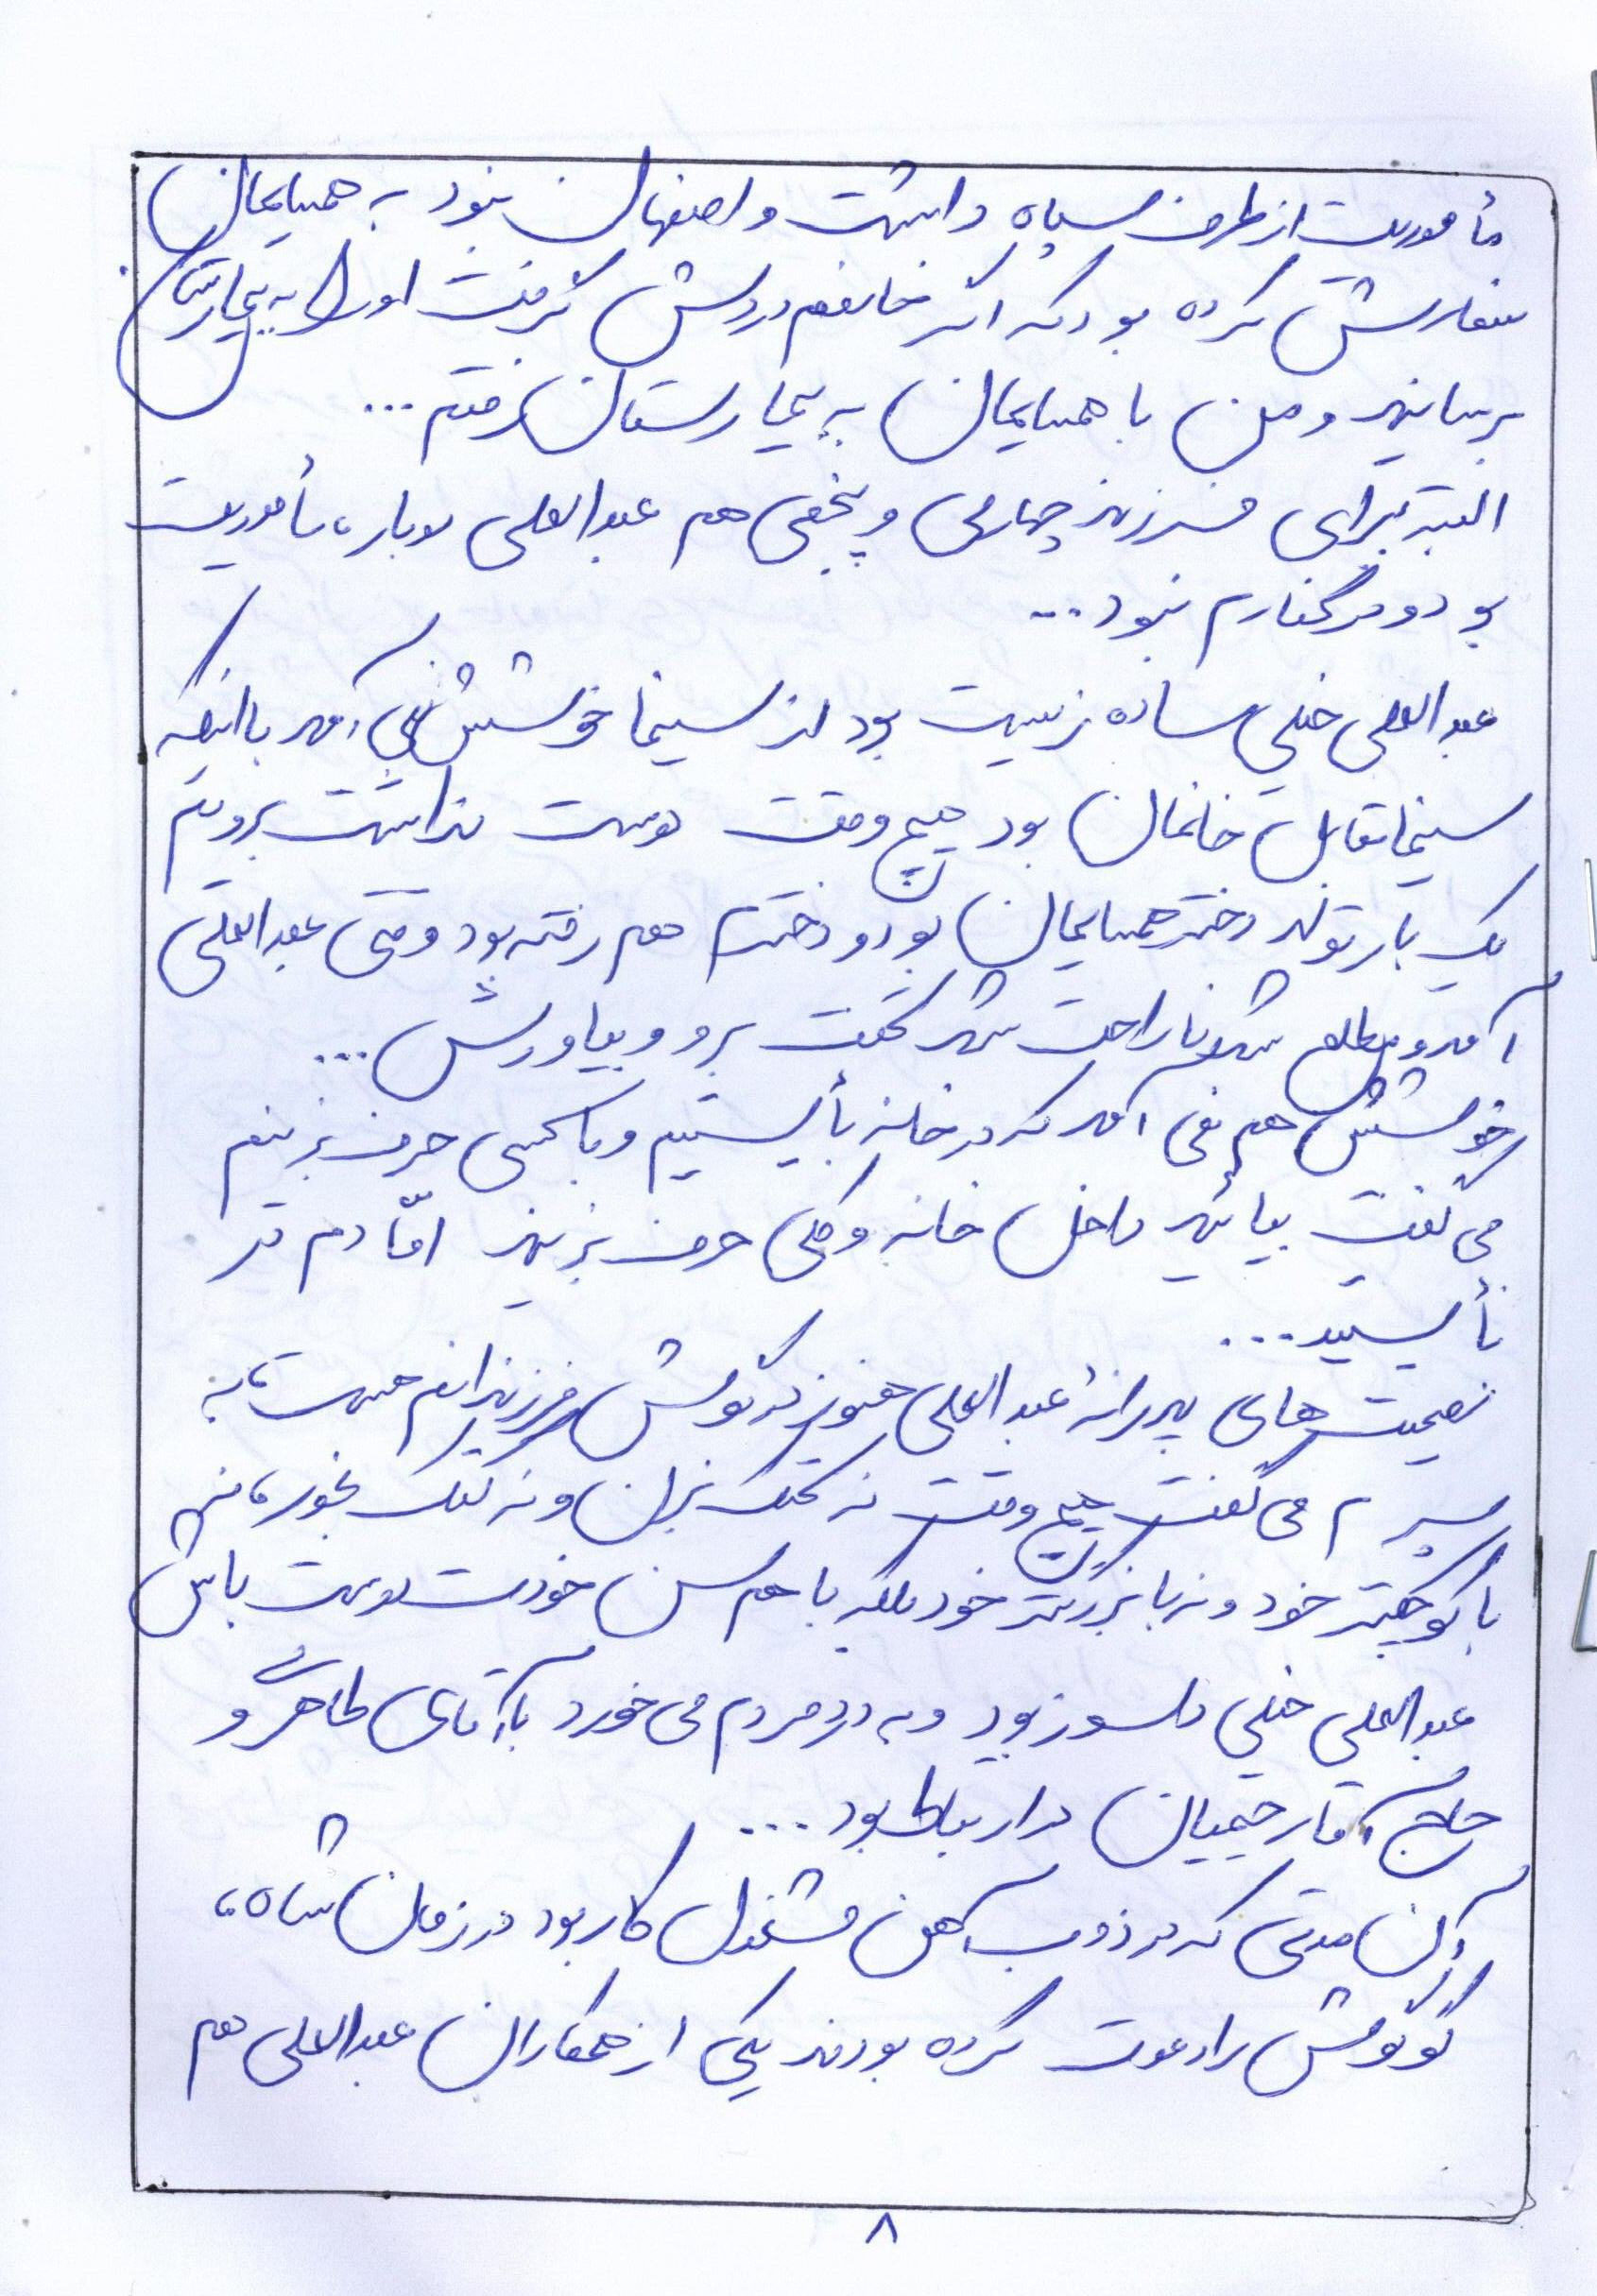 مأموریت از طرف سپاه داشت و اصفهان نبود به همسایمان
سفارش کرده بود که اگر خانمم دردش گرفت او را به بیمارستان
برسانید و من با همسایمان به بیمارستان رفتم...
البته برای فرزند چهارمی و پنجمی هم عبدالعلی دوباره مأموریت
بود و در کنارم نبود...
عبدالعلی خیلی ساده زیست بود از سینما خوشش نمی آمد با اینکه
سینما مقابل خانمان بود هیچ وقت دوست نداشت برویم
یک بار تولد دختر همسایمان بود و دخترم هم رفته بود وقتی عبدالعلی
آمد و مطلع شد ناراحت شد گفت برو و بیاورش...
خوشش هم نمی آمد که در خانه بأیستیم و با کسی حرف بزنیم
می گفت بیائید داخل خانه و کلی حرف بزنید امّا دم در
نأیستید...
نصیحت های پدرانۀ عبدالعلی هنوز در گوش فرزندانم هست، به
پسرم می گفت هیچ وقت نه کتک بزن و نه کتک بخور، نه
با کوچیکتر خود و نه با بزرگتر خود بلکه با هم سن خودت دوست باش
عبدالعلی خیلی دلسوز بود و به درد مردم می خورد با آقای طاهری و
حاج آقا رحیمیان در ارتباط بود...
آن مدتی که در ذوب آهن مشغول کار بود در زمان شاه،
گوگوش را دعوت کرده بودند یکی از همکاران عبدالعلی هم
۸